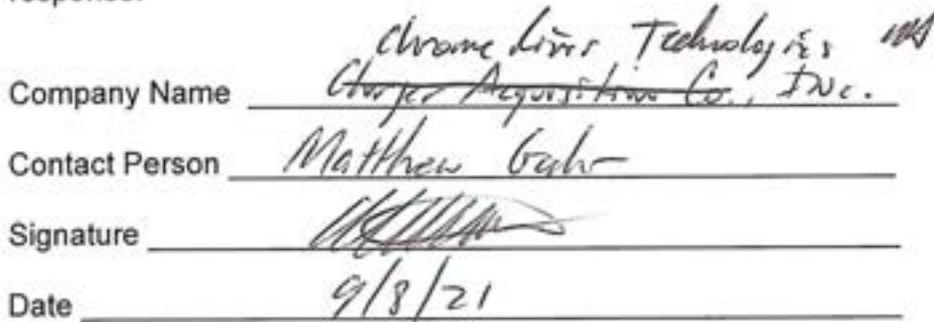 response.
Chrome River Technologies
Company Name Charger Acquisition Co., INC.
Contact Person Matthew Gahr
Signature
Date 9/8/21